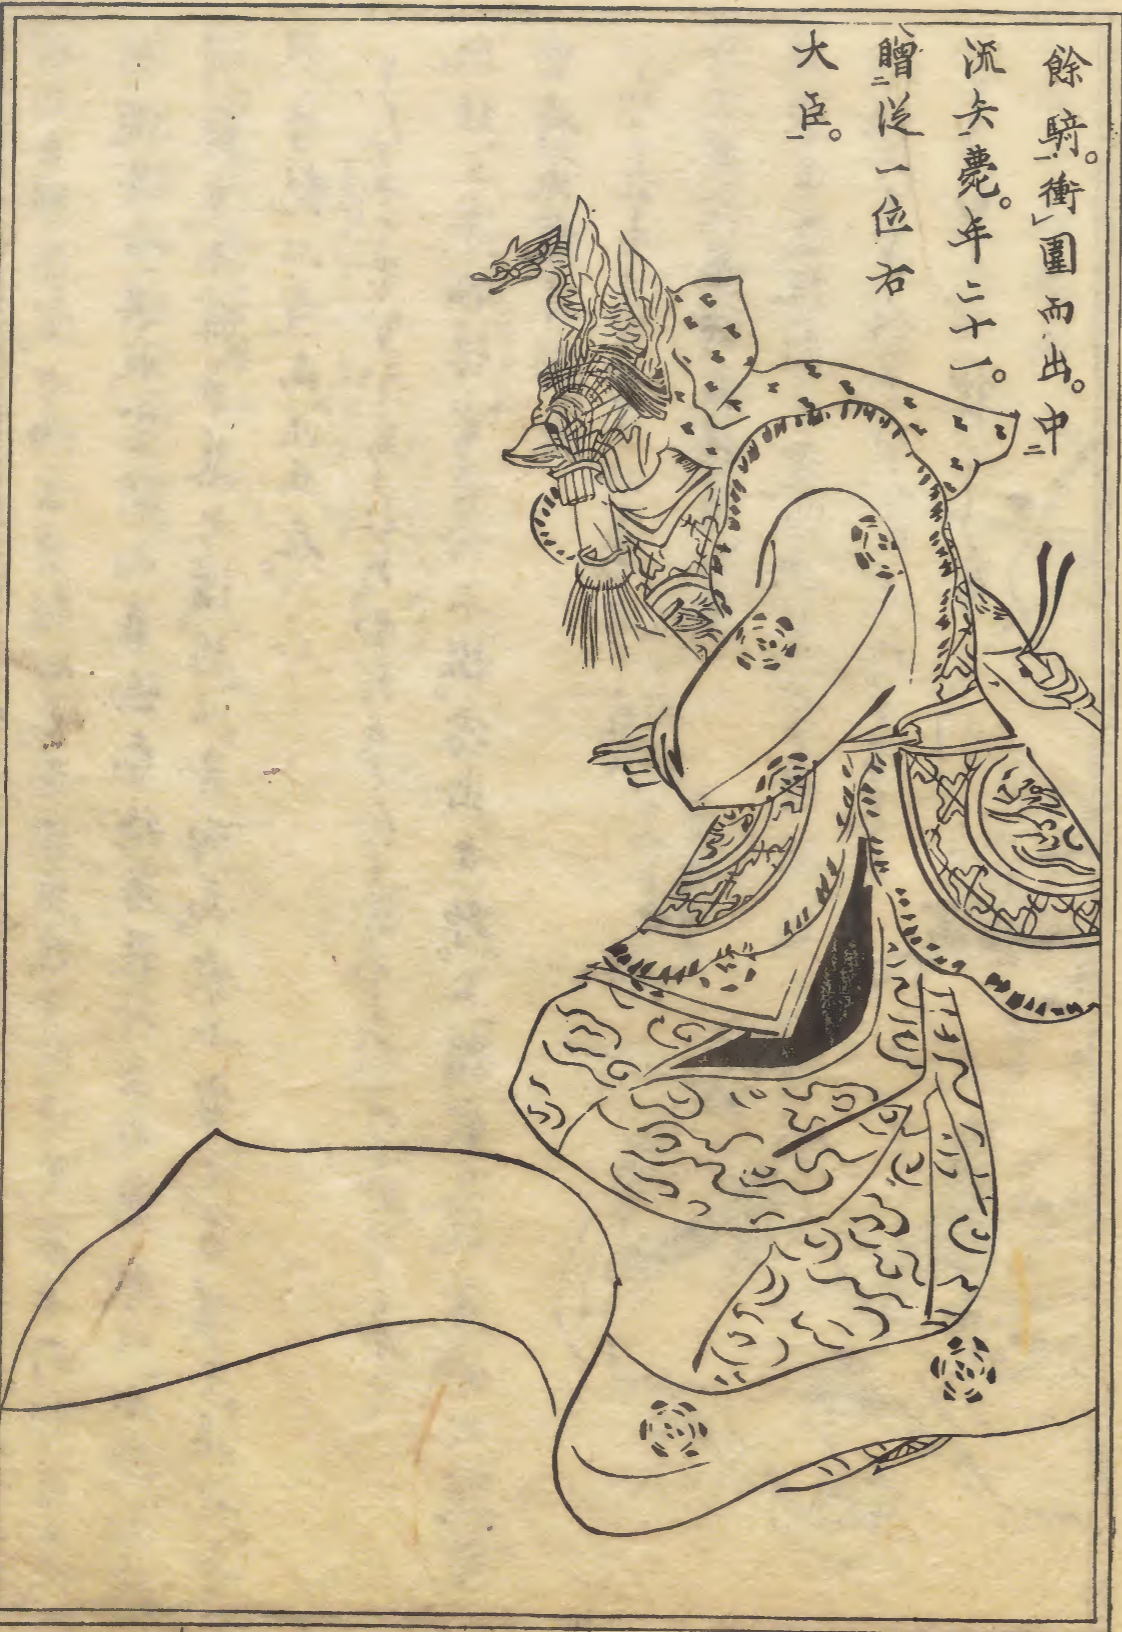 餘騎。衝圍而出。中
流矢薨。年二十一。
贈從一位右
大臣。